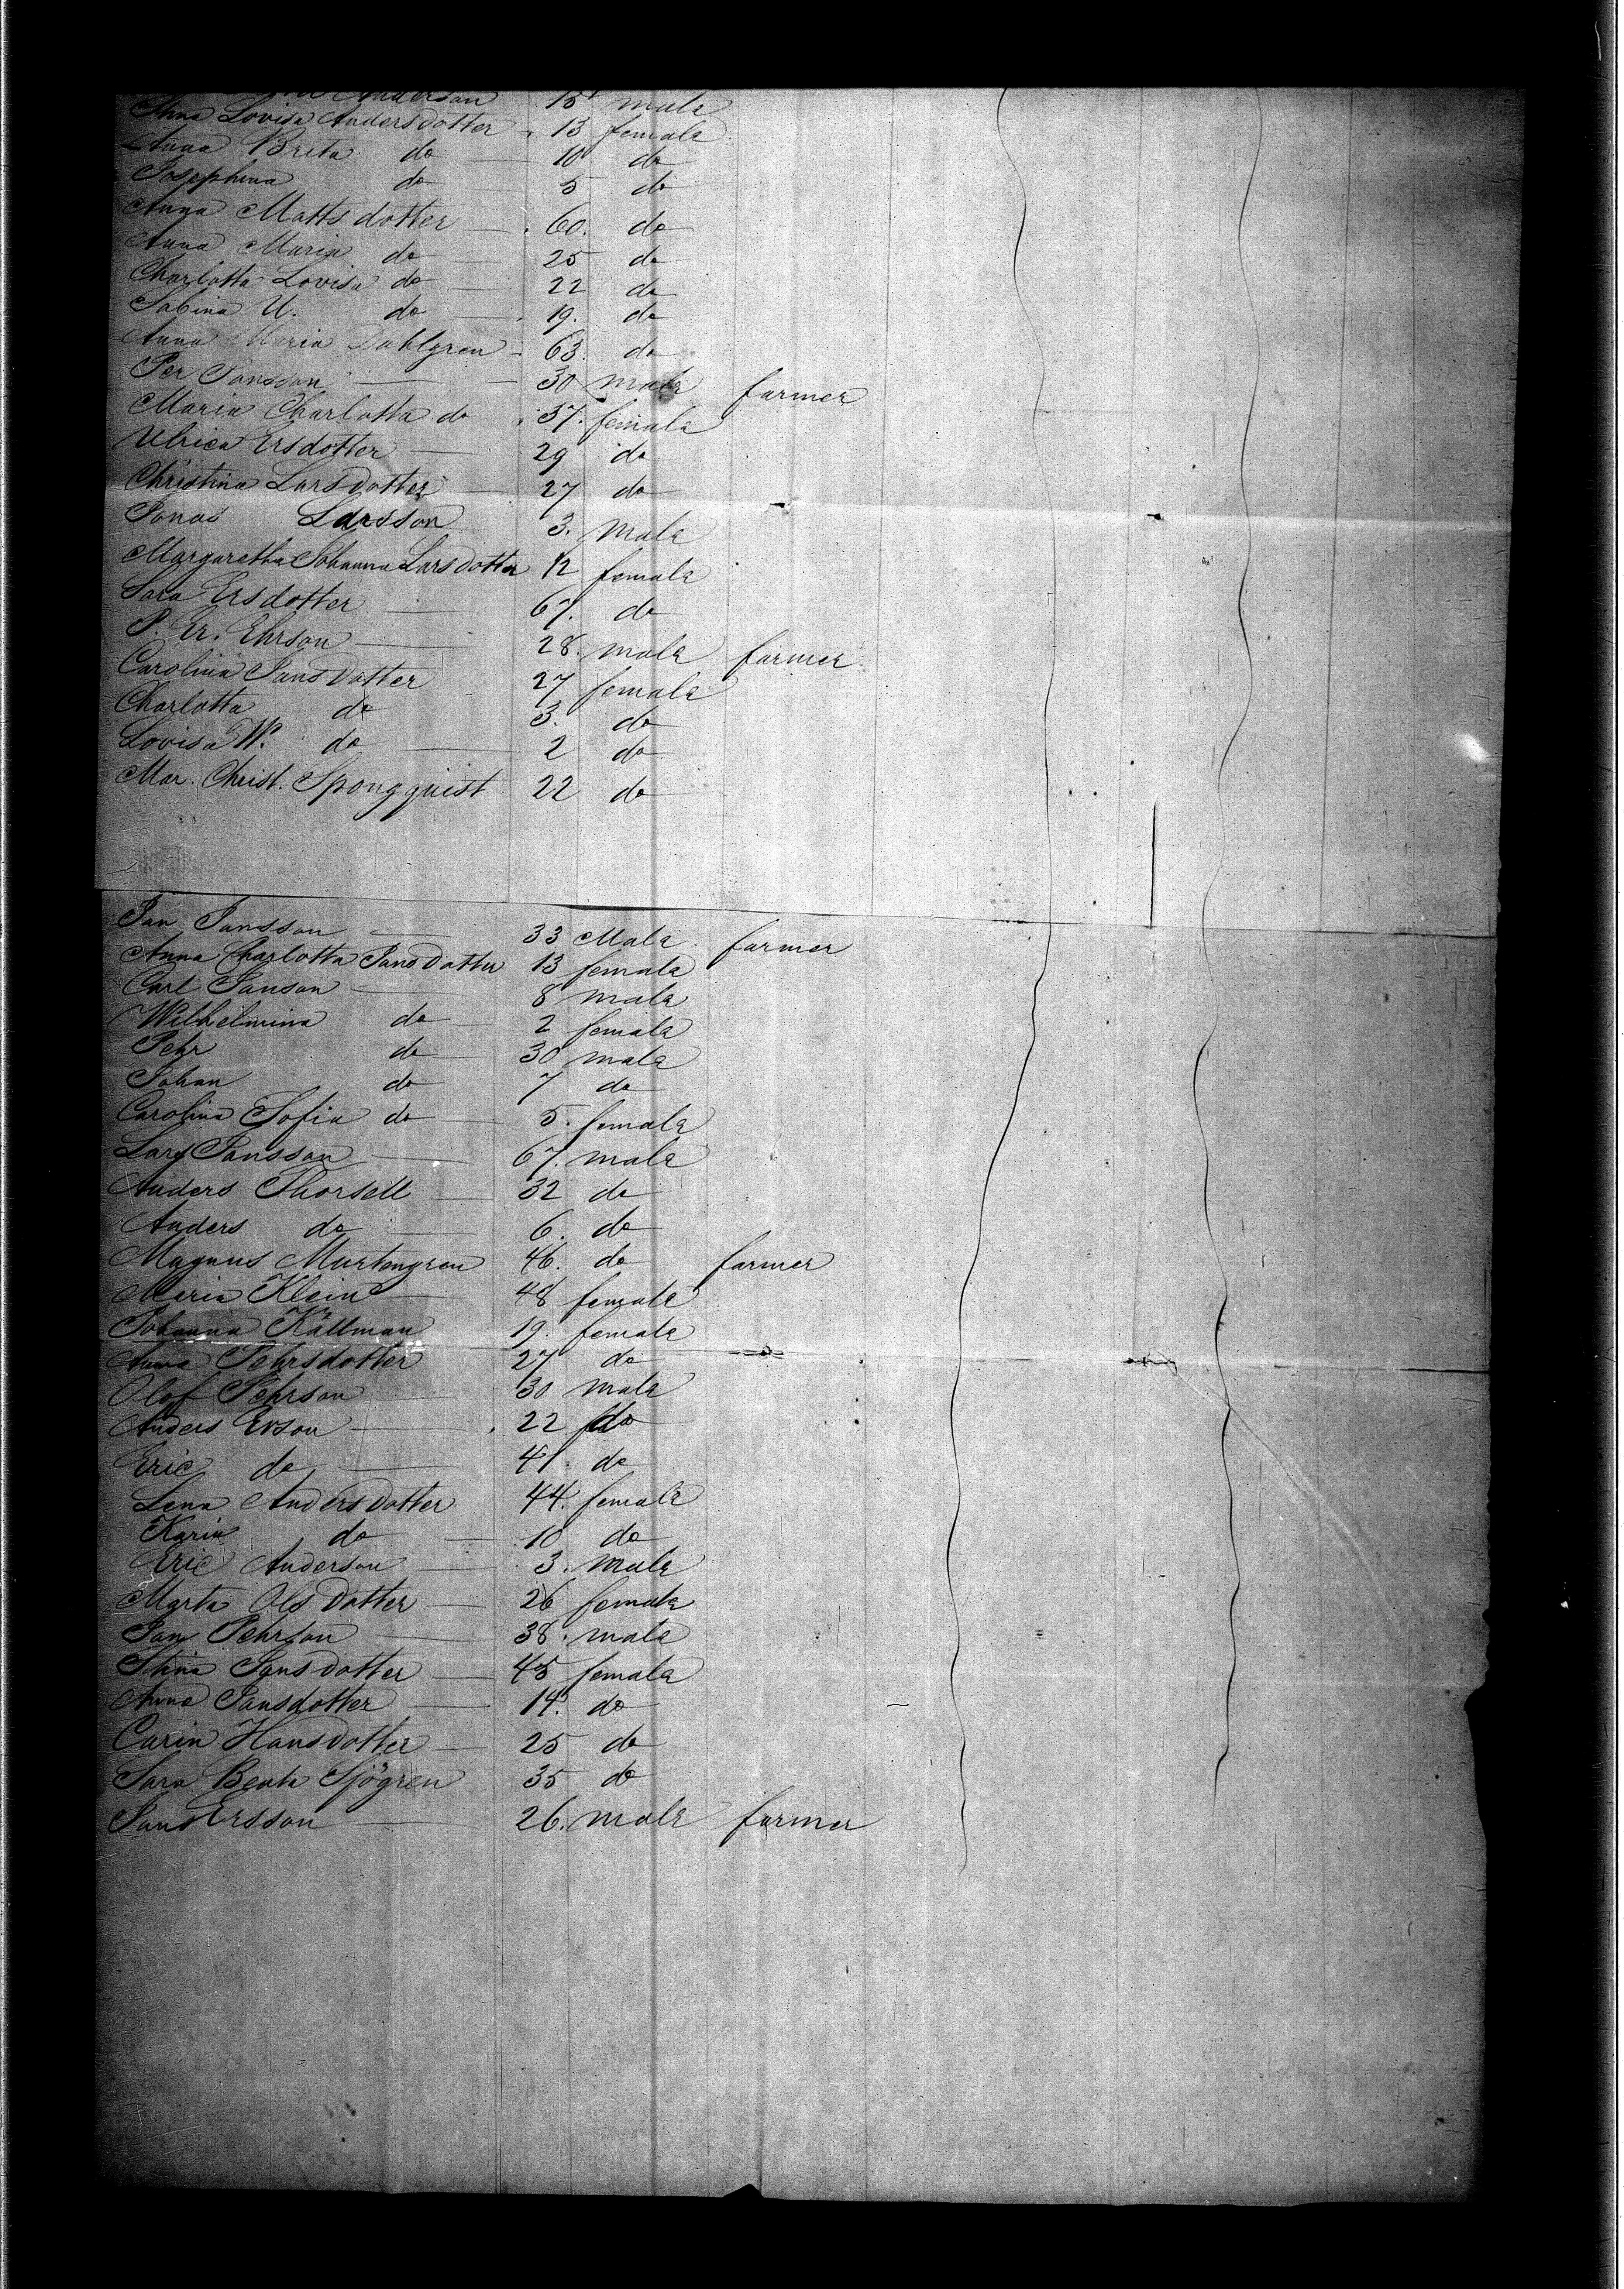 Anderson 15 male
Anna Lovisa Andersdotter 13 female
Anna Brita do 10 do
Josephina do 5 do
Anna Mattsdotter 60. do
Anna Maria do 25 do
Charlotta Lovisa do 22 do
Sabina U. do 19. do
Anna Maria Dahlgren 63. do
Per Jansson 30 male farmer
Maria Charlotta do 37. female
Ulrica Ersdotter 29 do
Christina Larsdotter 27 do
Jonas Larsson 3. male
Margaretha Johanna Larsdotter 12 female
Sara Ersdotter 67. do
P. Er. Ehrson 28. male farmer
Carolina Jansdotter 27 female
Charlotta do 3. do
Lovisa W. do 2 do
Mar. Christ. Spongquist 22 do
Jan Jansson 33 Male farmer
Anna Charlotta Jansdotter 13 female
Carl Janson 8 male
Wilhelmina do 2 female
Pehr do 30 male
Johan do 7 do
Carolina Sofia do 5. female
Lars Jansson 67. male
Anders Thorsell 32 do
Anders do 6. do
Magnus Murtengren 46. do farmer
Maria Klein 48 female
Johanna Källman 19. female
Anna Pehrsdotter 27 do
Olof Pehrson 30 male
Anders Erson 22 do
Eric do 41. do
Lena Andersdotter 44. female
Karin do 10 do
Eric Anderson 3. male
Marta Olsdotter 26 female
Jan Pehrson 38. male
Stina Jansdotter 45 female
Anna Jansdotter 14. do
Carin Hansdotter 25 do
Sara Beata Sjögren 35 do
Jans Ersson 26. male farmer